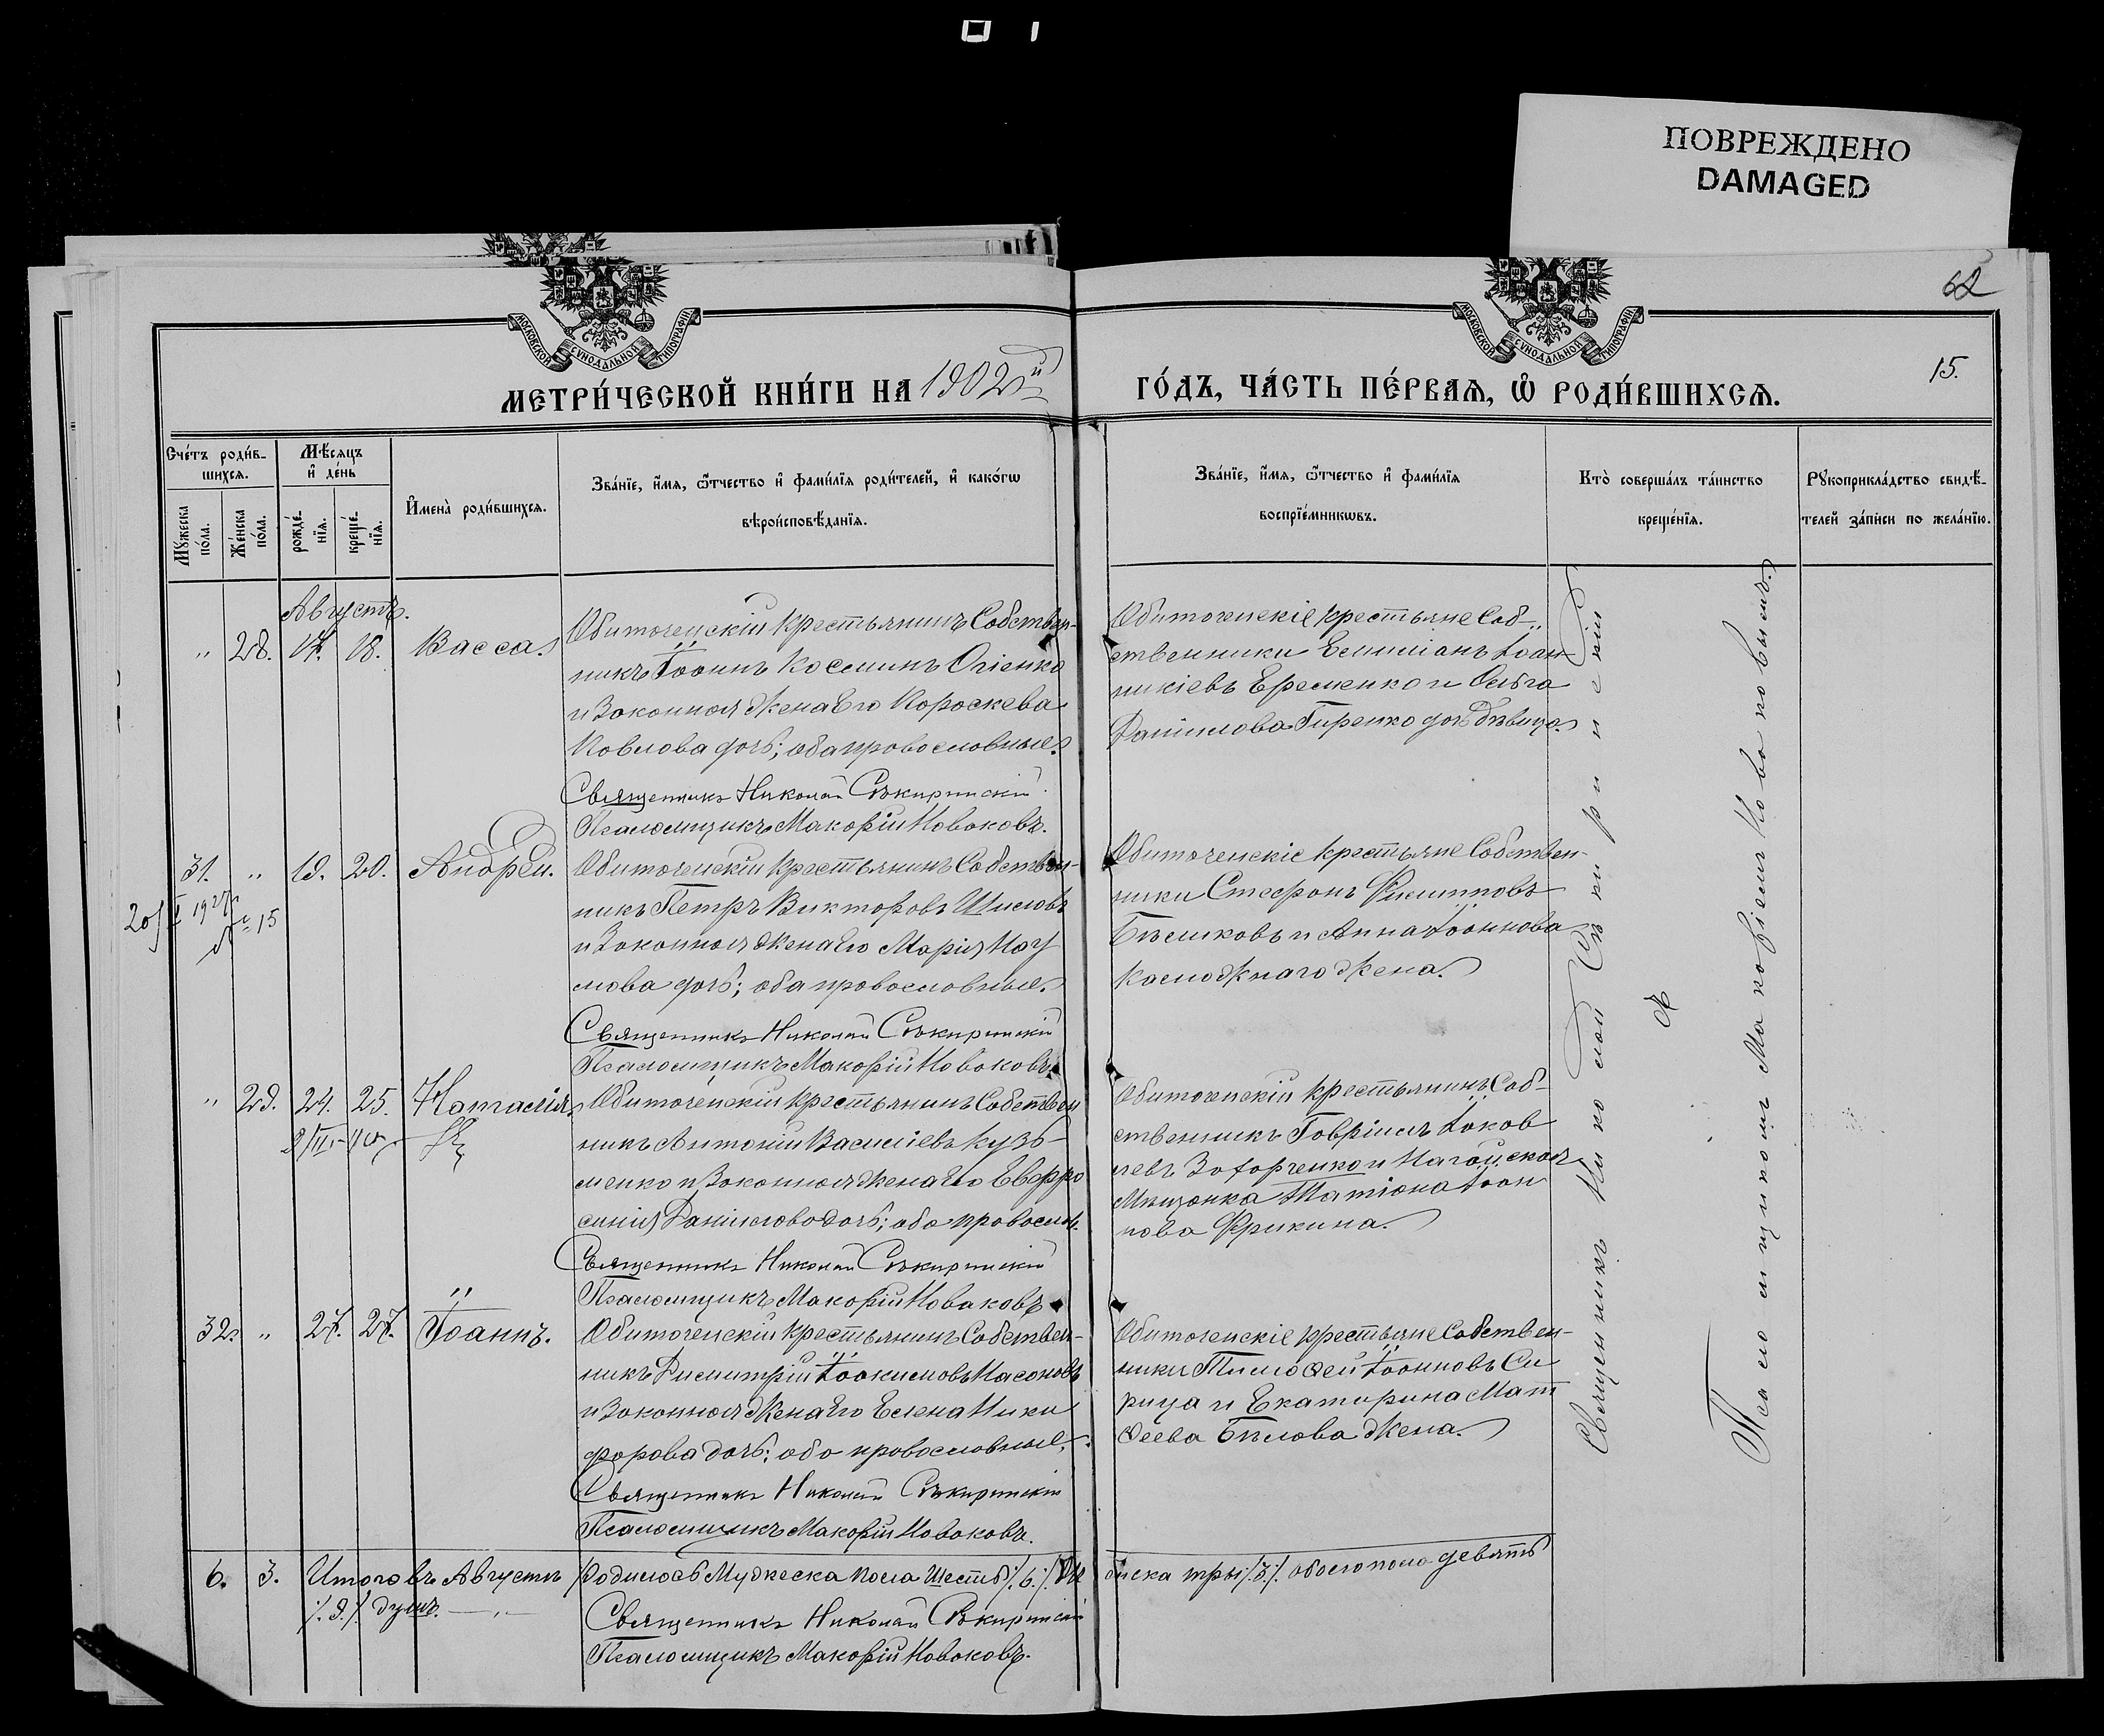 ПОВРЕЖДЕНО
DAMAGED
МОСКОВСКОЙ СѴНОДАЛЬНОЙ ТИПОГРАФІИ
МОСКОВСКОЙ СѴНОДАЛЬНОЙ ТИПОГРАФІИ
62
15.
МЕТРИ́ЧЕСКОЙ КНИ́ГИ НА 1902й
ГО́ДЪ, ЧА́СТЬ ПЕ́РВАЯ, Ѡ҆ РОДИ́ВШИХСЯ.
Сче́тъ роди́в-
шихся.
Мѣ́сяцъ
и҆ де́нь
Мꙋ́жеска
по́ла.
Же́нска
по́ла.
рожде́-
нїя.
креще́-
нїя.
И҆мена̀ роди́вшихся.
Зва́нїе, и҆́мя, ѻ҆́тчество и҆ фами́лїя роди́телей, и҆ како́гѡ
вѣроисповѣ́данїя.
Зва́нїе, и҆́мя, ѻ҆́тчество и҆ фами́лїя
воспрїе́мникѡвъ.
Кто̀ соверша́лъ та́инство
креще́нїя.
Рꙋкоприкла́дство свидѣ́-
телей за́писи по жела́нїю.
Августъ.
" 28. 17. 18. Васса.
Обиточенскій крестьянинъ Собствен-
никъ Іоаннъ Косминъ Огіенко
и Законная жена Его Параскева
Павлова дочь; оба православные.
Священникъ Николай Сѣкиринскій
Псаломщикъ Макарій Новаковъ.
Обиточенскіе крестьяне Соб-
ственники Емиліанъ Іоан
никіевъ Еременко и Ольга
Даніилова Гиренко дочь дѣвица.
31. " 19. 20. Андрей.
20/I 1927г
№ 15
Обиточенскій крестьянинъ Собствен-
никъ Петръ Викторовъ Шиловъ
и Законная жена Его Марія Нау
мова дочь; оба православные.
Священникъ Николай Сѣкиринскій
Псаломщикъ Макарій Новаковъ.
Обиточенскіе крестьяне Собствен-
ники Стефанъ Филипповъ
Бѣликовъ и Анна Іоаннова
жена.
" 29. 24. 25. Наталія.
Обиточенскій крестьянинъ Собствен
никъ Антоній Василіевъ Кузь-
менко и Законная жена Его Евфро
синія Даніилова дочь; оба православ.
Священникъ Николай Сѣкиринскій
Псаломщикъ Макарій Новаковъ
Обиточенскій крестьянинъ Соб-
ственникъ Гавріилъ Іаков
левъ Захарченко и Ногайская
Мѣщанка Татіана Іоан
нова Фрикина.
32. " 27. 27. Іоаннъ.
Обиточенскій крестьянинъ Собствен-
никъ Димитрій Іоакимовъ Насоновъ
и Законная жена Его Елена Ники
форова дочь; оба православные.
Священникъ Николай Сѣкиринскій
Псаломщикъ Макарій Новаковъ.
Обиточенскіе крестьяне Собствен-
ники Тимоѳей Іоанновъ Си
рица и Екатерина Мат
ѳеева Бѣлова жена.
Священникъ Николай Сѣкиринскій
Съ
Псаломщикомъ Макаріемъ Новаковымъ.
6. 3. Итого въ Августѣ родилось Мужеска пола шесть /.6./. Же нска три /.3./. обоего пола девять
/.9./. душъ.
Священникъ Николай Сѣкиринскій
Псаломщикъ Макарій Новаковъ.